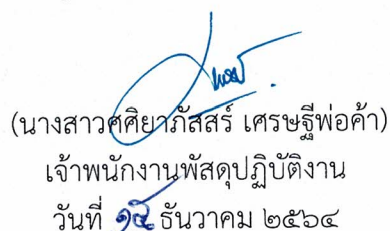 (นางสาวศศิยาภัสสร์ เศรษฐีพ่อค้า)
เจ้าพนักงานพัสดุปฏิบัติงาน
วันที่ ๑๕ ธันวาคม ๒๕๖๔